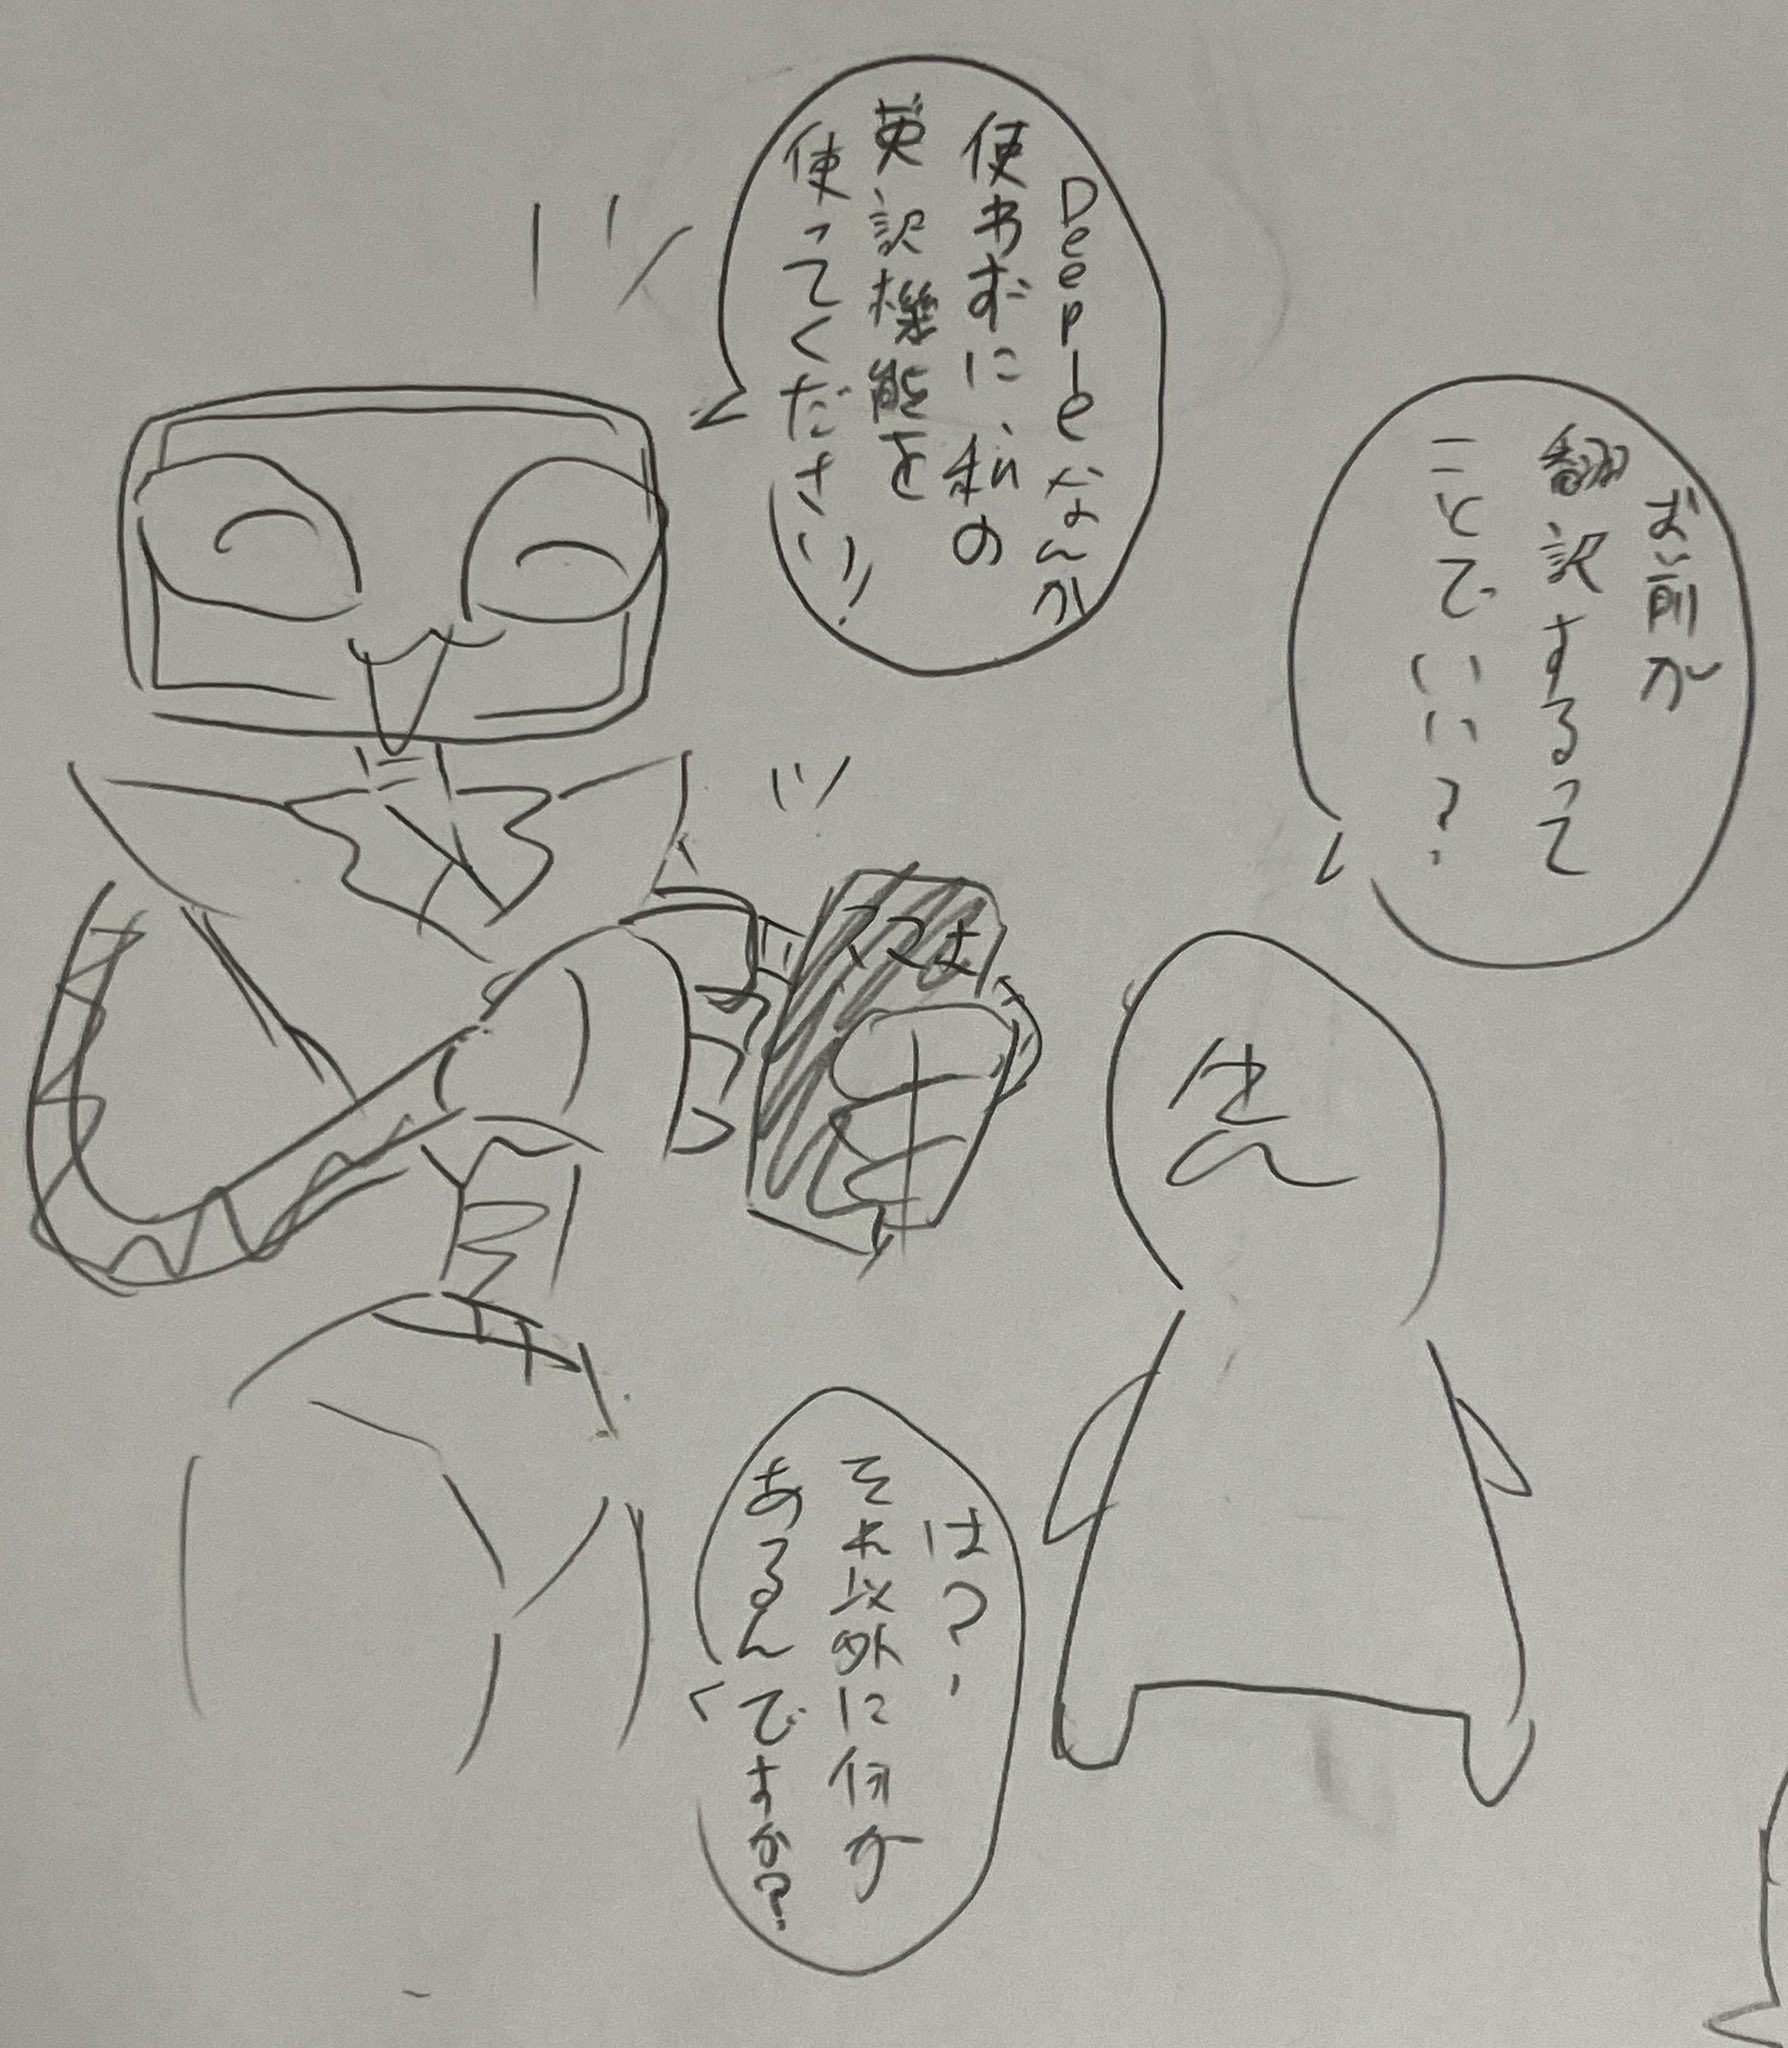 Deepleなんか
使わずに、私の
英訳機能を
使ってください!
お前が
翻訳するって
ことでいい?
スマホ
せん
は?
それ以外に何が
あるんですか?